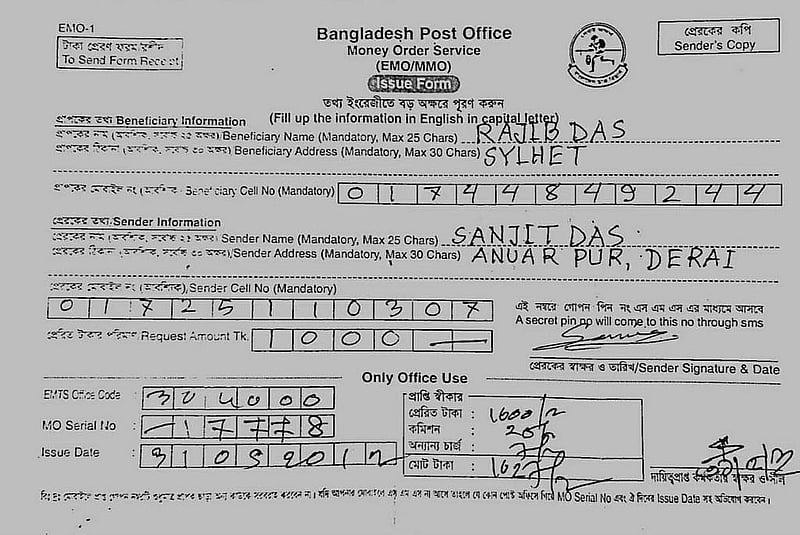 EMO-1
টাকা প্রেরণ ফরম/রশিদ
To Send Form Receipt
Bangladesh Post Office
Money Order Service
(EMO/MMO)
Issue Form
প্রেরকের কপি
Sender's Copy
তথ্য ইংরেজীতে বড় অক্ষরে পূরণ করুন
(Fill up the information in English in capital letter)
প্রাপকের তথ্য Beneficiary Information
প্রাপকের নাম (আবশ্যিক, সর্বোচ্চ ২৫ অক্ষর)/Beneficiary Name (Mandatory, Max 25 Chars) RAJIB DAS
প্রাপকের ঠিকানা (আবশ্যিক, সর্বোচ্চ ৩০ অক্ষর) Beneficiary Address (Mandatory, Max 30 Chars) SYLHET
প্রাপকের মোবাইল নং (আবশ্যিক) Beneficiary Cell No (Mandatory) 01744849244
প্রেরকের তথ্য/Sender Information
প্রেরকের নাম (আবশ্যিক, সর্বোচ্চ ২৫ অক্ষর) Sender Name (Mandatory, Max 25 Chars) SANJIT DAS
প্রেরকের ঠিকানা (আবশ্যিক, সর্বোচ্চ ৩০ অক্ষর)/Sender Address (Mandatory, Max 30 Chars) ANUAR PUR, DERAI
প্রেরকের মোবাইল নং (আবশ্যিক),Sender Cell No (Mandatory)
01725110307
প্রেরিত টাকার পরিমাণ/Request Amount Tk. 1000
এই নম্বরে গোপন পিন নং এস এম এস এর মাধ্যমে আসবে
A secret pin no will come to this no through sms
প্রেরকের স্বাক্ষর ও তারিখ/Sender Signature & Date
Only Office Use
EMTS Office Code : 304000
MO Serial No : 17778
Issue Date : 31052012
প্রাপ্তি স্বীকার
প্রেরিত টাকা :
কমিশন :
অন্যান্য চার্জ :
মোট টাকা :
দায়িত্বপ্রাপ্ত কর্মকর্তার স্বাক্ষর ও সীল
MO Serial No এবং ঐ দিনের Issue Date সহ অভিযোগ করবেন।